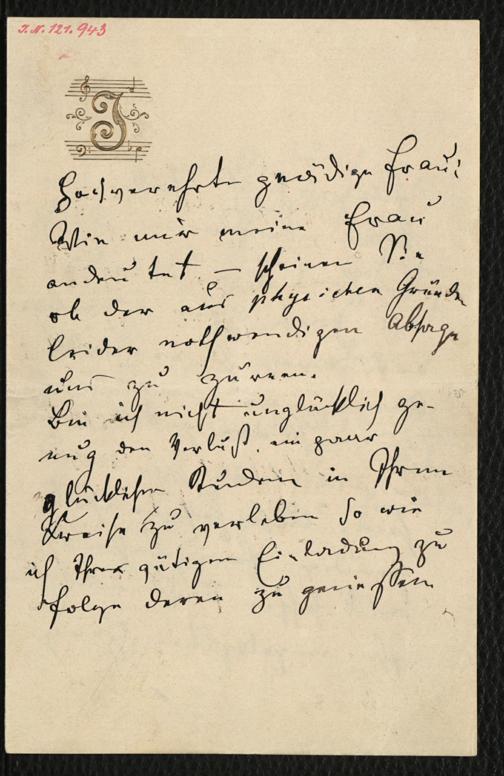 J. N. 121.943
J
Hochverehrte gnädige Frau!
Wie mir meine Frau
andeutet – scheinen Sie
ob der aus physischen Gründen
leider nothwendigen Absage
uns zu zürnen.
Bin ich nicht unglücklich ge-
nug den Verlust, ein paar
glücklichen Stunden in Ihrem
Kreise zu verleben so wie
ich Ihrer gütigen Einladung zu
folge deren zu geniessen